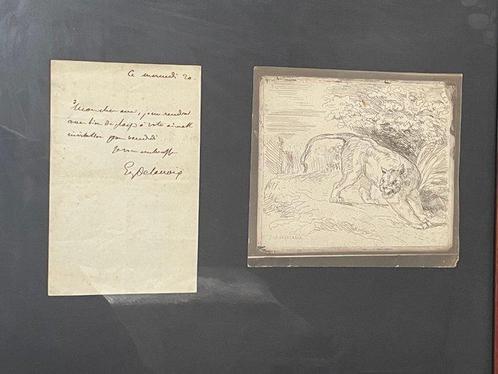 Ce mercredi 20
Mon cher ami, je me rendrai
avec bien du plaisir à votre aimable
invitation pour vendredi
Je vous embrasse
Eug Delacroix